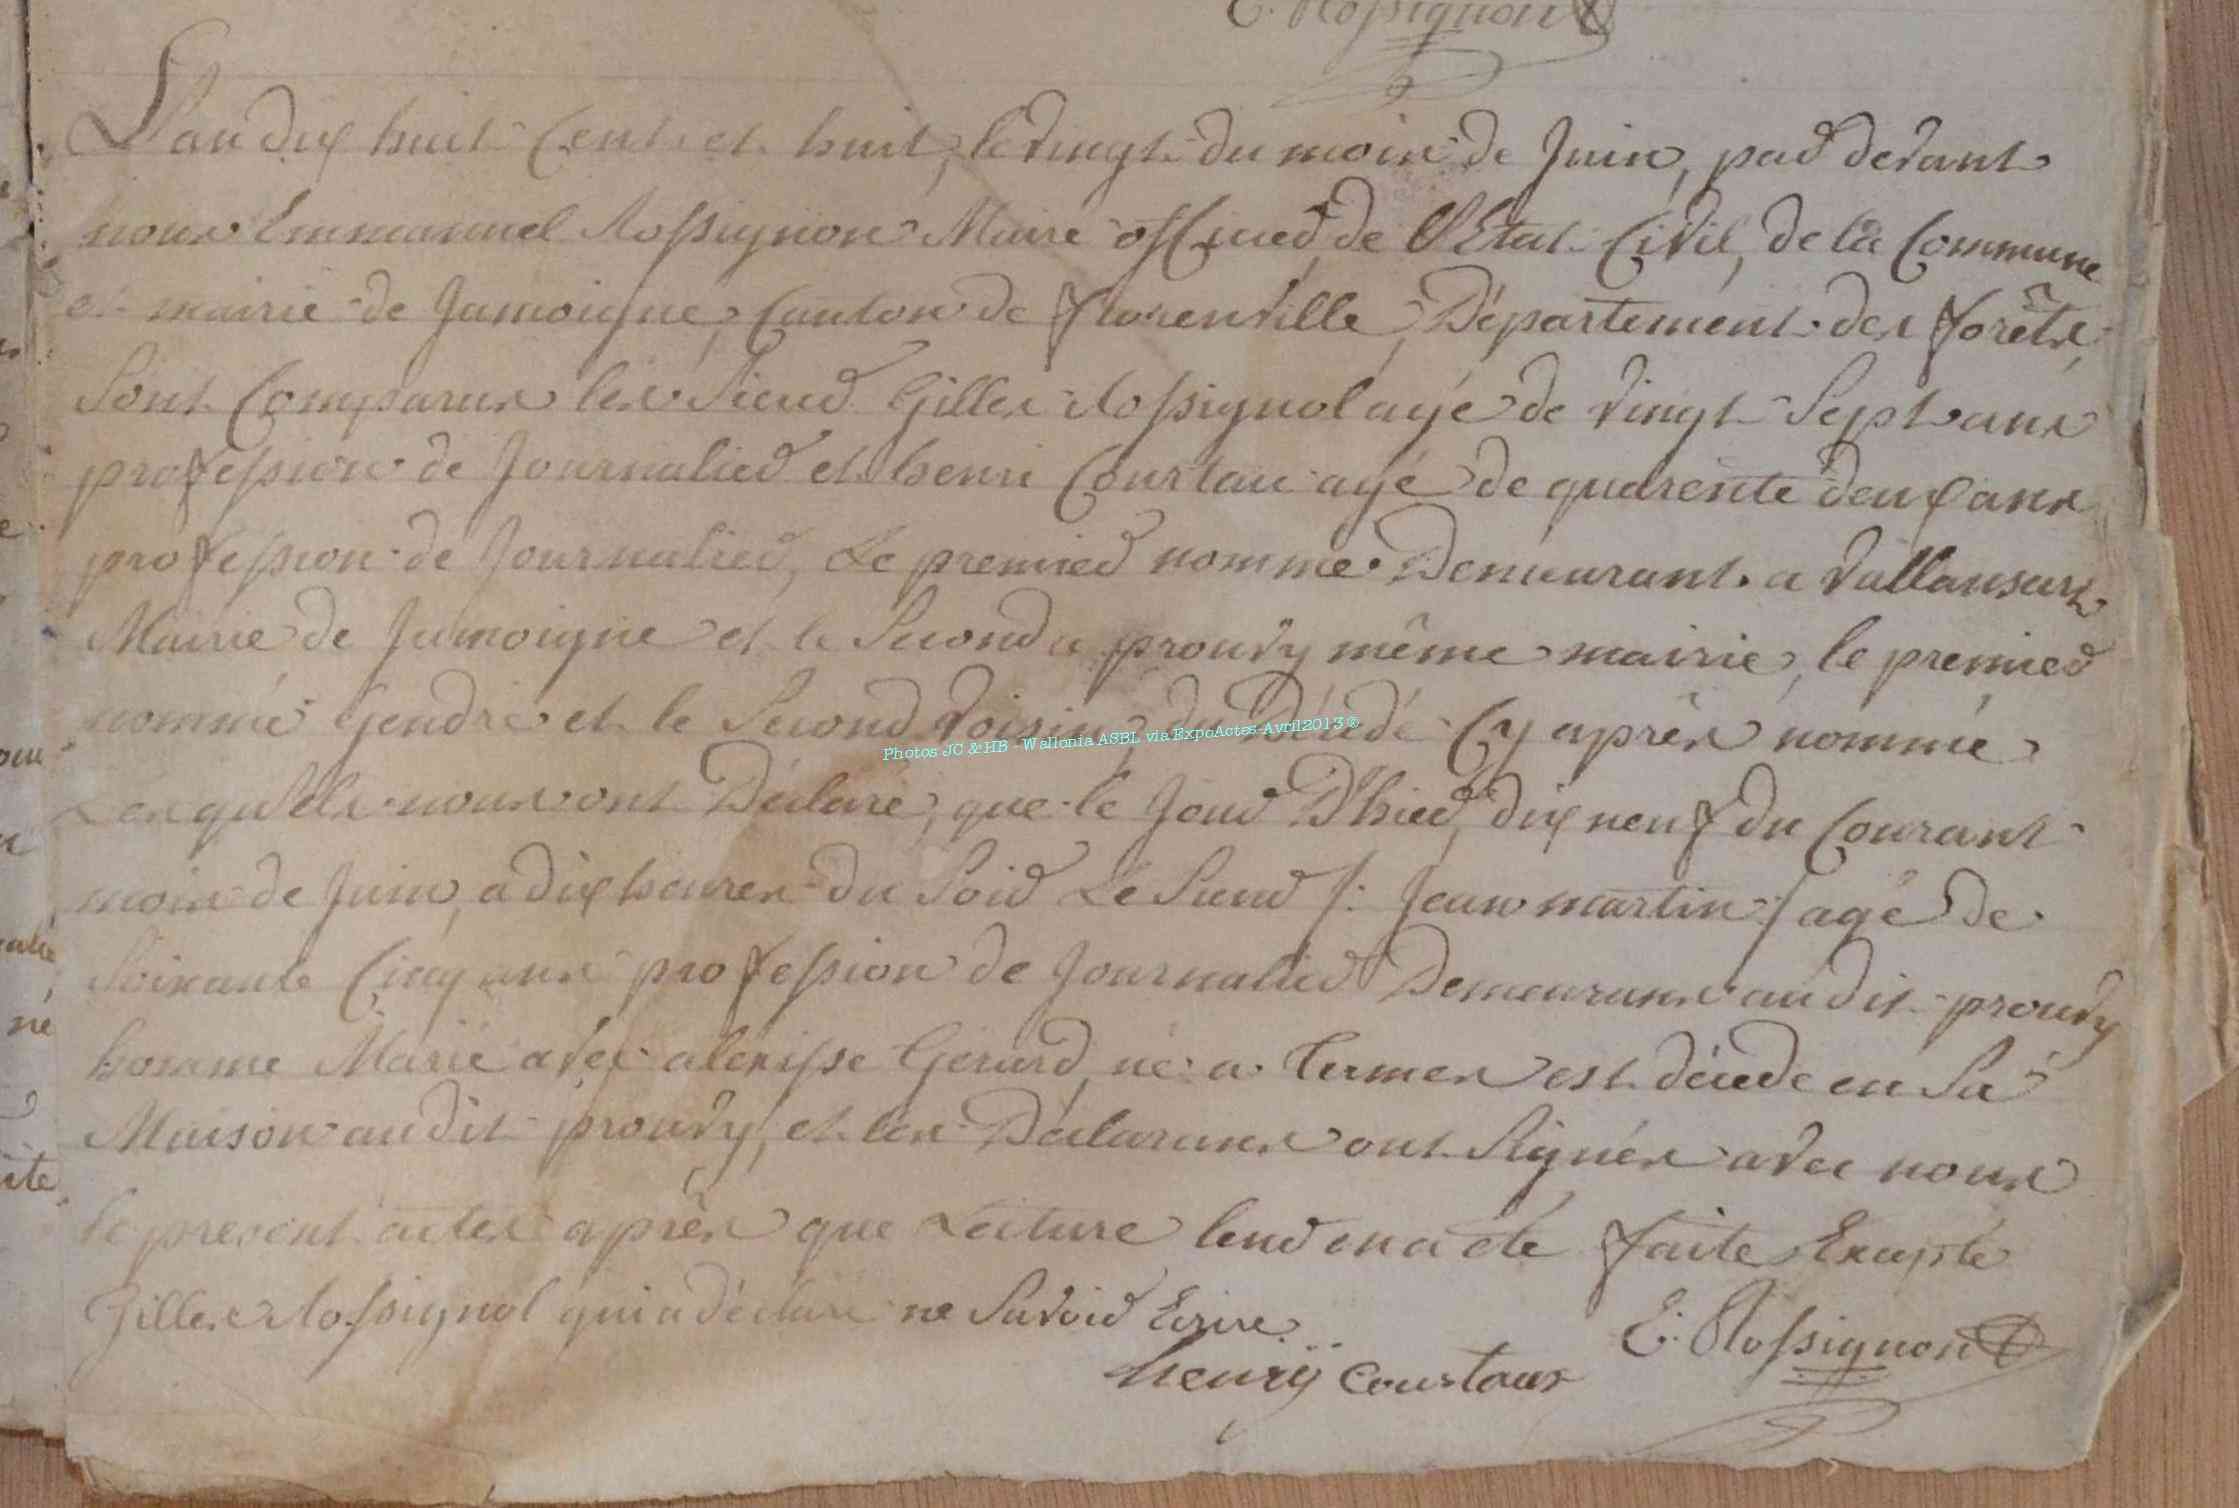 E. Rossignon
L'an dix huit Cent et huit, le vingt du mois de Juin, par devant
nous Emmanuel Rossignon Maire officier de l'Etat Civil, de la Commune
et mairie de Jamoigne, Canton de florenville, Département des forêts,
Sont Comparus les Sieur Gilles Rossignol agé de vingt Sept ans
profession de Journalier et henri Courtau agé de quarente deux ans
profession de Journalier, Le premier nommé Demeurant a vallansart
Mairie de Jamoigne et le Second a prouvy même mairie, le premier
nommé Gendre et le Second voisin du Décédé Cy après nommé
Photos JC & HB - Wallonia ASBL via ExpoActes-Avril2013®
Lesquels nous ont Déclaré, que le Jour D'hier, dix neuf du Courant
mois de Juin, a dix heures du Soir Le Sieur /: Jean martin :/ agé De
Soixante Cinq ans profession de Journalier Demeurans audit prouvy
homme Marié avec alexisse Gerard, né a termes est décede en Sa
Maison audit prouvy, et les Déclarans ont Signés avec nous
le present actes après que Lecture leur en a été faite Excepté
Gilles Rossignol qui a déclaré ne Savoir Ecrire.
E. Rossignon
henrÿ courtaux